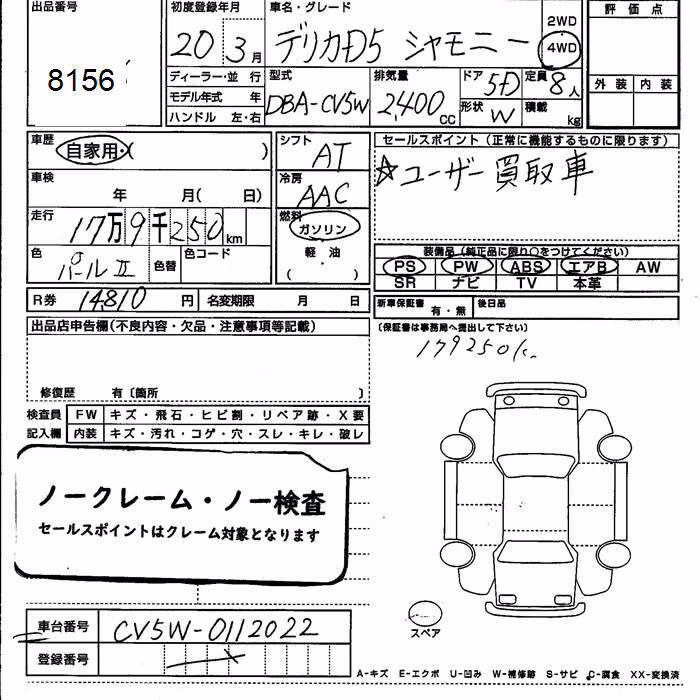 出品番号 初度登録年月 車名・グレード 評価点
8156 20 3月 デリカD5 シャモニー 2WD 4WD
ディーラー・並 行 型式 排気量 ドア 定員 外装 内装
モデル年式 年 DBA-CV5W 2,400cc 5D 8人
ハンドル 左・右 形状 W 積載 kg
車歴 自家用・( ) シフト AT セールスポイント (正常に機能するものに限ります)
車検 年 月( 日) 冷房 AAC ☆ユーザー買取車
走行 17万9千250km 燃料 ガソリン
色 パールⅡ 色替 色コード 軽油 ( ・ ) 装備品 (純正品に限り○をつけてください)
PS PW ABS エアB AW
SR ナビ TV 本革
R券 14,810円 名変期限 月 日 新車保証書 有・無 後日品
出品店申告欄(不良内容・欠品・注意事項等記載) (保証書は事務局へ提出して下さい)
179250k
修復歴 有〔箇所 〕
検査員 FW キズ・飛石・ヒビ割・リペア跡・X要
記入欄 内装 キズ・汚れ・コゲ・穴・スレ・キレ・破レ
ノークレーム・ノー検査
セールスポイントはクレーム対象となります
スペア
車台番号 CV5W-0112022
登録番号
A-キズ E-エクボ U-凹み W-補修跡 S-サビ C-腐食 XX-変換済